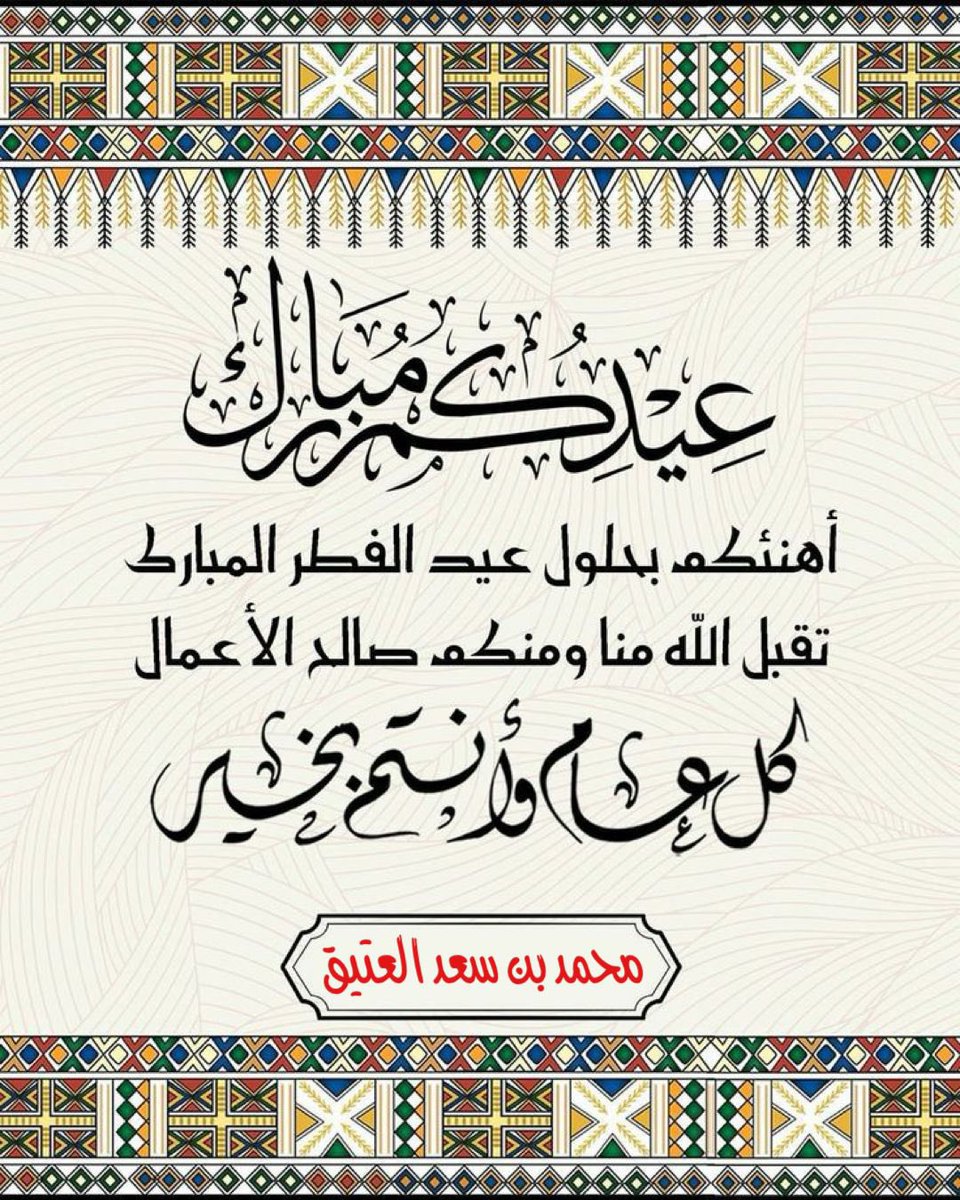 عِيْدِكُم مُبَارك
أهنئكم بحلول عيد الفطر المبارك
تقبل الله منا ومنكم صالح الأعمال
كل عام وأنتم بخير
محمد بن سعد العتيق